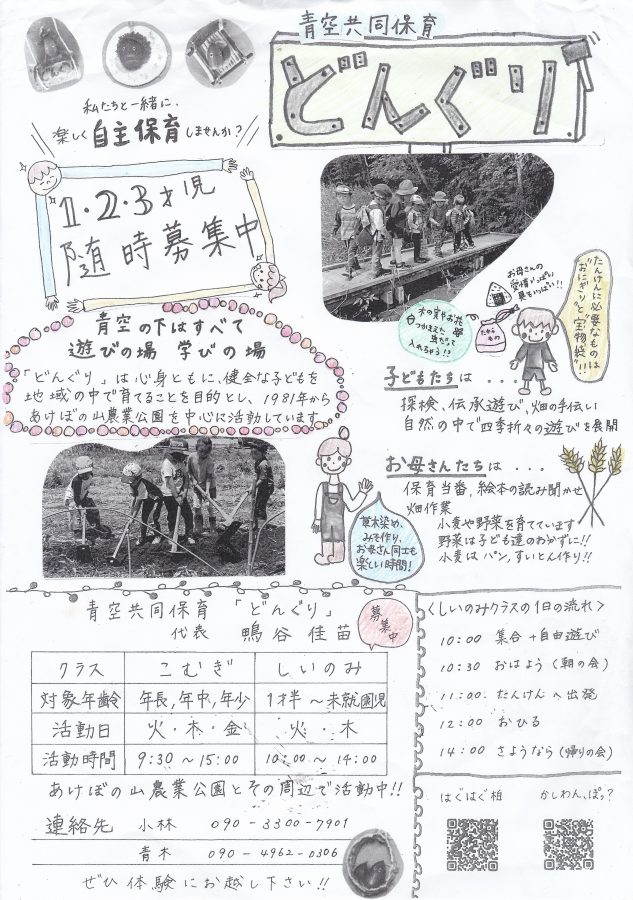 青空共同保育
どんぐり
私たちと一緒に、
楽しく自主保育しませんか?
1・2・3才児
随時募集中
お母さんの
愛情がいっぱい!!
たからもの
たんけんに必要なものは
"おにぎり"と"宝物袋"!!
木の実やお花
つかまえた
虫だって
入れちゃう!?
青空の下はすべて
遊びの場 学びの場
「どんぐり」は心身ともに、健全な子どもを
地域の中で育てることを目的とし、1981年から
あけぼの山農業公園を中心に活動しています
子どもたちは...
探検、伝承遊び、畑の手伝い
自然の中で四季折々の遊びを展開
お母さんたちは...
保育当番、絵本の読み聞かせ
畑作業
小麦や野菜を育てています
野菜は子ども達のおかずに!!
小麦はパン,すいとん作り!!
草木染め、
みそ作り,
お母さん同士も
楽しい時間!
青空共同保育「どんぐり」
代表 鴨谷佳苗
募集中
クラス こむぎ しいのみ
対象年齢 年長,年中,年少 1才半~未就園児
活動日 火・木・金 火・木
活動時間 9:30~15:00 10:00~14:00
あけぼの山農業公園とその周辺で活動中!!
連絡先 小林 090-3300-7901
青木 090-4962-0306
ぜひ体験にお越し下さい!!
<しいのみクラスの1日の流れ>
10:00 集合+自由遊び
10:30 おはよう(朝の会)
11:00 たんけんへ出発
12:00 おひる
14:00 さようなら(帰りの会)
はぐはぐ柏 かしわん、ぽっ?